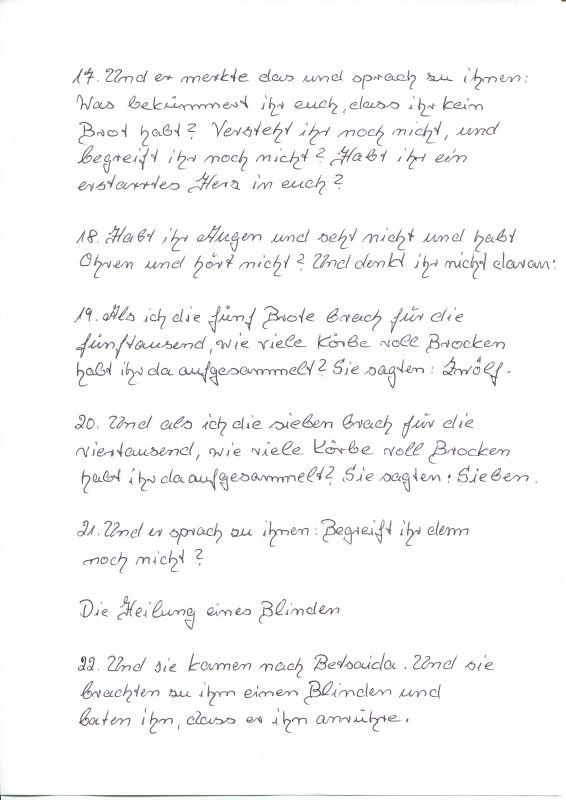 17. Und er merkte das und sprach zu ihnen:
Was bekümmert ihr euch, dass ihr kein
Brot habt? Versteht ihr noch nicht, und
begreift ihr noch nicht? Habt ihr ein
erstarrtes Herz in euch?
18. Habt ihr Augen und seht nicht und habt
Ohren und hört nicht? Und denkt ihr nicht daran:
19. Als ich die fünf Brote brach für die
fünftausend, wie viele Körbe voll Brocken
habt ihr da aufgesammelt? Sie sagten: Zwölf.
20. Und als ich die sieben brach für die
viertausend, wie viele Körbe voll Brocken
habt ihr da aufgesammelt? Sie sagten: Sieben.
21. Und er sprach zu ihnen: Begreift ihr denn
noch nicht?
Die Heilung eines Blinden
22. Und sie kamen nach Betsaida. Und sie
brachten zu ihm einen Blinden und
baten ihn, dass er ihn anrühre.